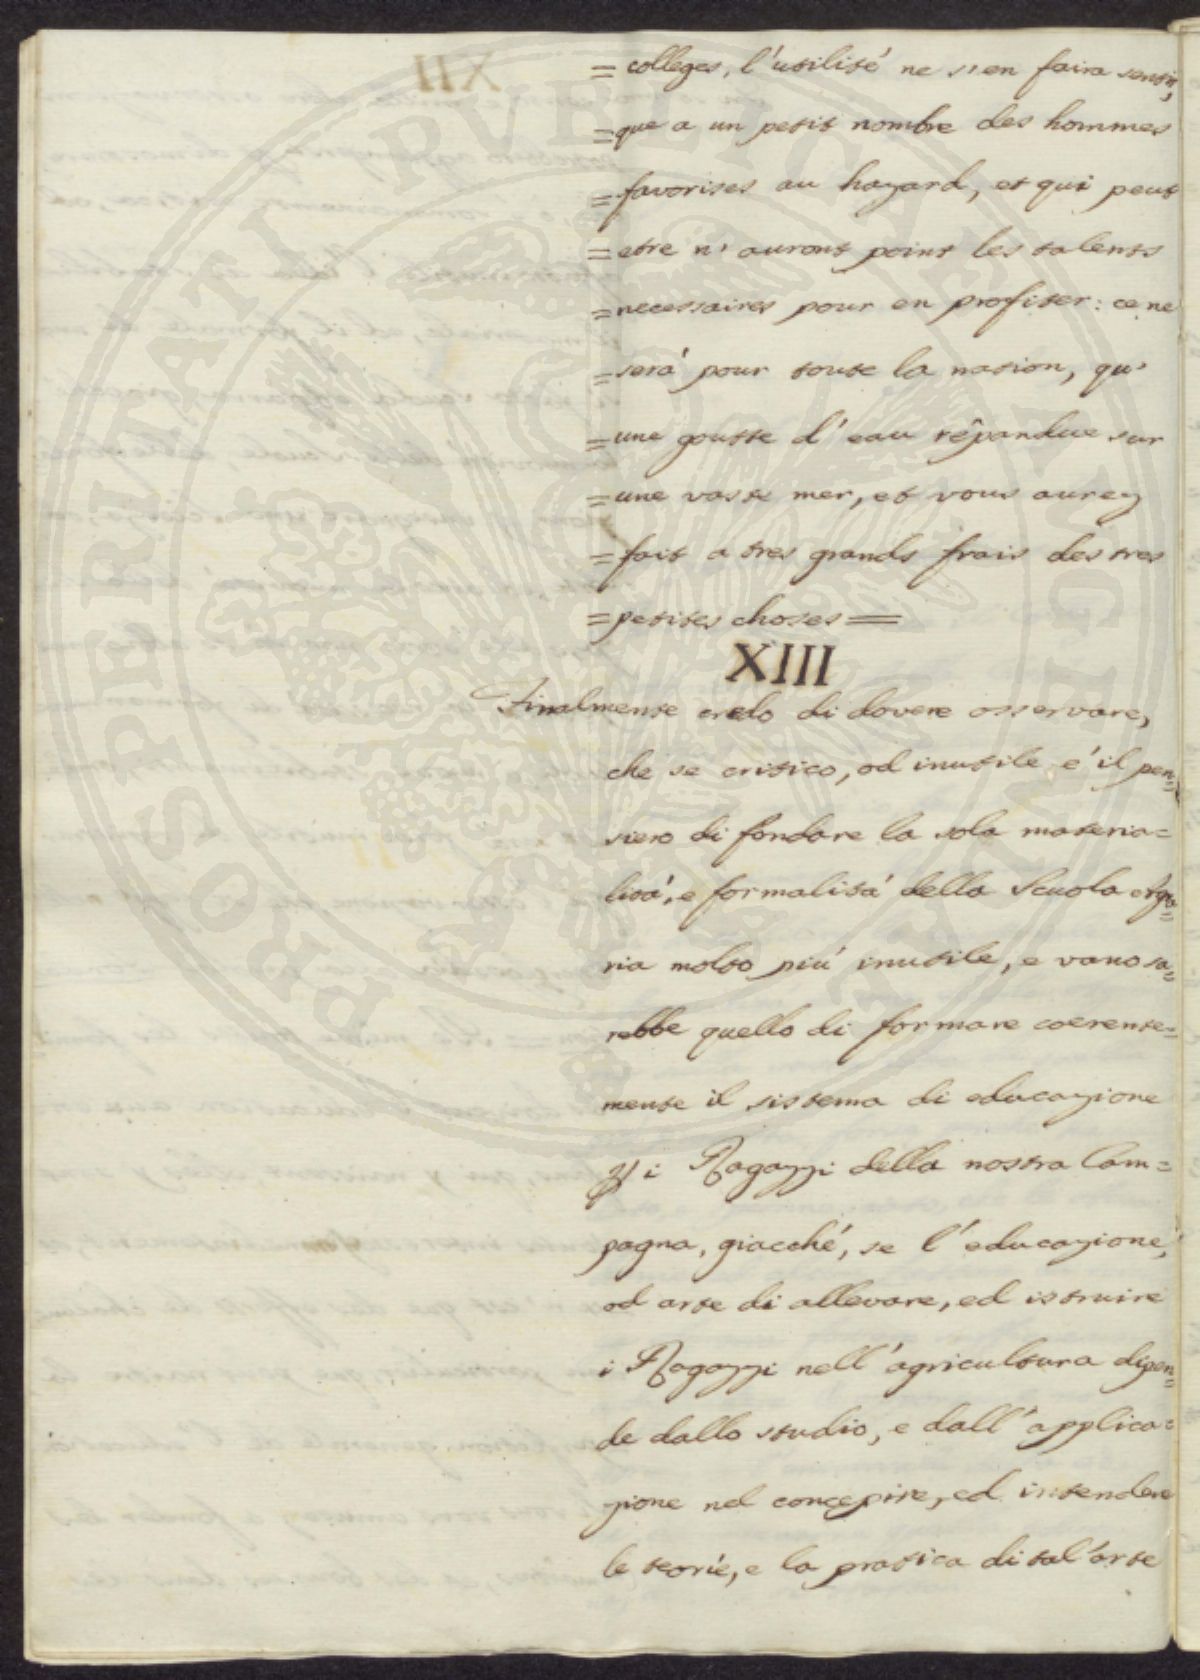 = colleges, l'utilité ne s'en faira sentir,
= que a un petit nombre des hommes
= favorises au hazard, et qui peut
= etre n'auront point les talents
= necessaires pour en profiter: ce ne
= será pour toute la nation, qu'
= une goutte d'eau rêpandue sur
= une vaste mer, et vous aurez
= fait a tres grands frais des tres
= petites choses =
XIII
Finalmente credo di dovere osservare,
che se critico, od inutile é il pen=
siero di fondare la sola materia=
litá, e formalitá della Scuola agra=
ria molto piú inutile, e vano sa=
rebbe quello di formare coerente=
mente il sistema di educazione
p i Ragazzi della nostra Cam=
pagna, giacché, se l'educazione,
od arte di allevare, ed istruire
i Ragazzi nell'agricultura dipen=
de dallo studio, e dall'applica=
zione nel concepire, ed intendere
le teorie, e la pratica di tal'arte
PROSPERITATI PVBLICAE AVGENDAE